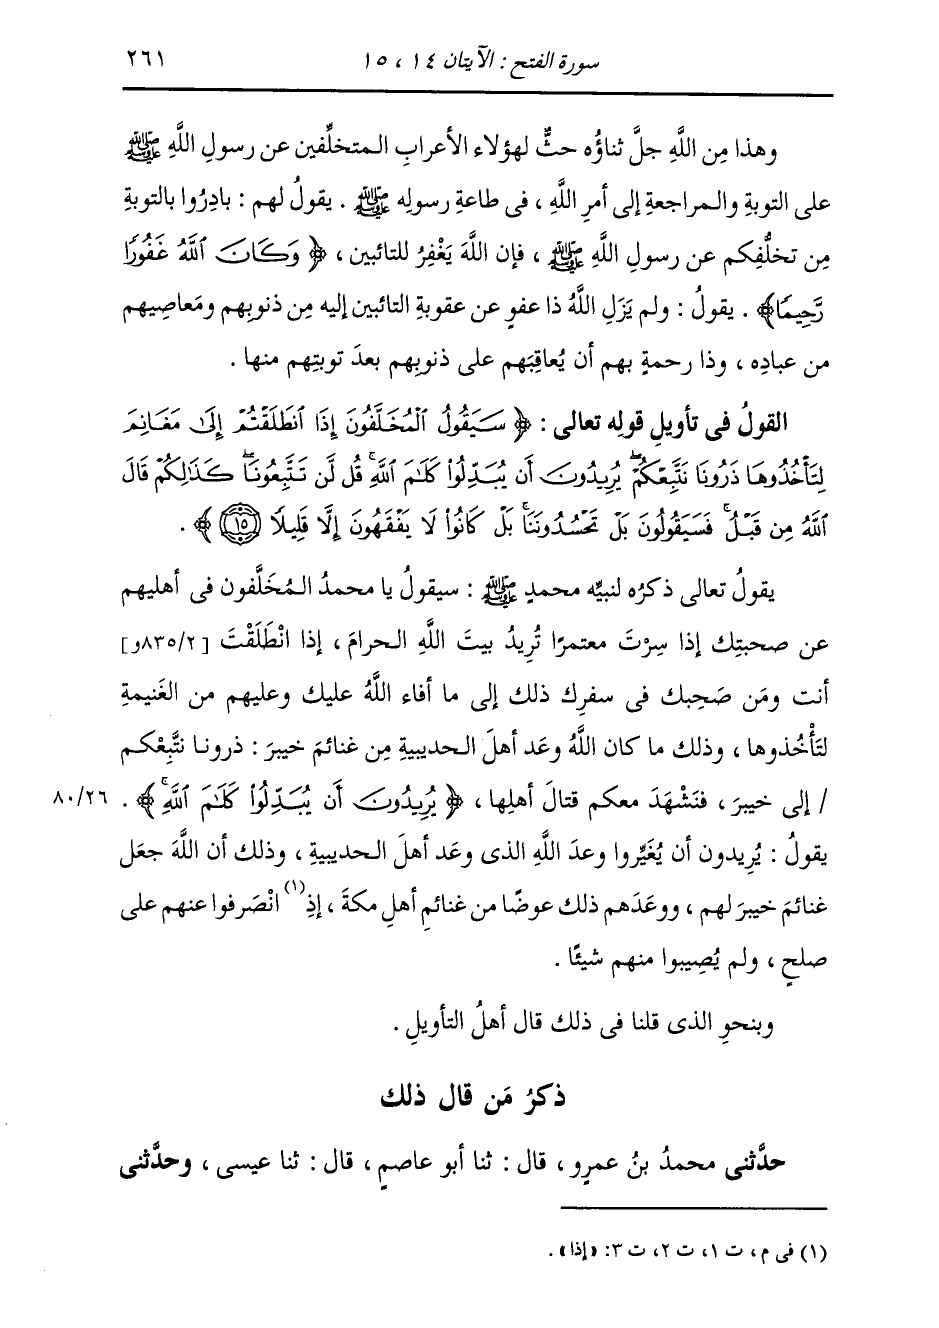 سورة الفتح : الآيتان ١٤ ، ١٥ ٢٦١
وهذا مِن اللَّهِ جلَّ ثناؤُه حثٌّ لهؤلاء الأعرابِ المتخلِّفين عن رسولِ اللَّهِ ﷺ
على التوبةِ والمراجعةِ إلى أمرِ اللَّهِ ، فى طاعةِ رسولِه ﷺ . يقولُ لهم : بادِرُوا بالتوبةِ
مِن تخلُّفِكم عن رسولِ اللَّهِ ﷺ ، فإن اللَّهَ يَغْفِرُ للتائبين ، ﴿ وَكَانَ ٱللَّهُ غَفُورًا
رَّحِيمًا﴾ . يقولُ : ولم يَزَلِ اللَّهُ ذا عفوٍ عن عقوبةِ التائبين إليه مِن ذنوبِهم ومَعاصِيهم
من عبادِه ، وذا رحمةٍ بهم أن يُعاقِبَهم على ذنوبِهم بعدَ توبتِهم منها .
القولُ فى تأويلِ قولِه تعالى : ﴿ سَيَقُولُ ٱلْمُخَلَّفُونَ إِذَا ٱنطَلَقْتُمْ إِلَىٰ مَغَانِمَ
لِتَأْخُذُوهَا ذَرُونَا نَتَّبِعْكُمْ ۖ يُرِيدُونَ أَن يُبَدِّلُوا۟ كَلَٰمَ ٱللَّهِ ۚ قُل لَّن تَتَّبِعُونَا ۖ كَذَٰلِكُمْ قَالَ
ٱللَّهُ مِن قَبْلُ ۖ فَسَيَقُولُونَ بَلْ تَحْسُدُونَنَا ۚ بَلْ كَانُوا۟ لَا يَفْقَهُونَ إِلَّا قَلِيلًا ١٥ ﴾ .
يقولُ تعالى ذكرُه لنبيِّه محمدٍ ﷺ : سيقولُ يا محمدُ المُخَلَّفون فى أهليهم
عن صحبتِك إذا سِرْتَ معتمرًا تُرِيدُ بيتَ اللَّهِ الحرامَ ، إذا انْطَلَقْتَ [٨٣٥/٢و]
أنت ومَن صَحِبك فى سفرِك ذلك إلى ما أفاء اللَّهُ عليك وعليهم من الغَنيمةِ
لتَأْخُذوها ، وذلك ما كان اللَّهُ وعَد أهلَ الحديبيةِ مِن غنائمَ خيبرَ : ذرونا نتَّبِعْكم
/ إلى خيبرَ ، فنَشْهَدَ معكم قتالَ أهلِها ، ﴿ يُرِيدُونَ أَن يُبَدِّلُوا۟ كَلَٰمَ ٱللَّهِ ۚ﴾ . ٨٠/٢٦
يقولُ : يُرِيدون أن يُغَيِّروا وعدَ اللَّهِ الذى وعَد أهلَ الحديبيةِ ، وذلك أن اللَّهَ جعَل
غنائمَ خيبرَ لهم ، ووعَدَهم ذلك عوضًا من غنائمِ أهلِ مكةَ ، إذِ(١) انْصَرفوا عنهم على
صلحٍ ، ولم يُصِيبوا منهم شيئًا .
وبنحوِ الذى قلنا فى ذلك قال أهلُ التأويلِ .
ذكرُ مَن قال ذلك
حدَّثنى محمدُ بنُ عمرٍو ، قال : ثنا أبو عاصمٍ ، قال : ثنا عيسى ، وحدَّثنى
(١) فى م ، ت ١، ت ٢، ت ٣: «إذا» .